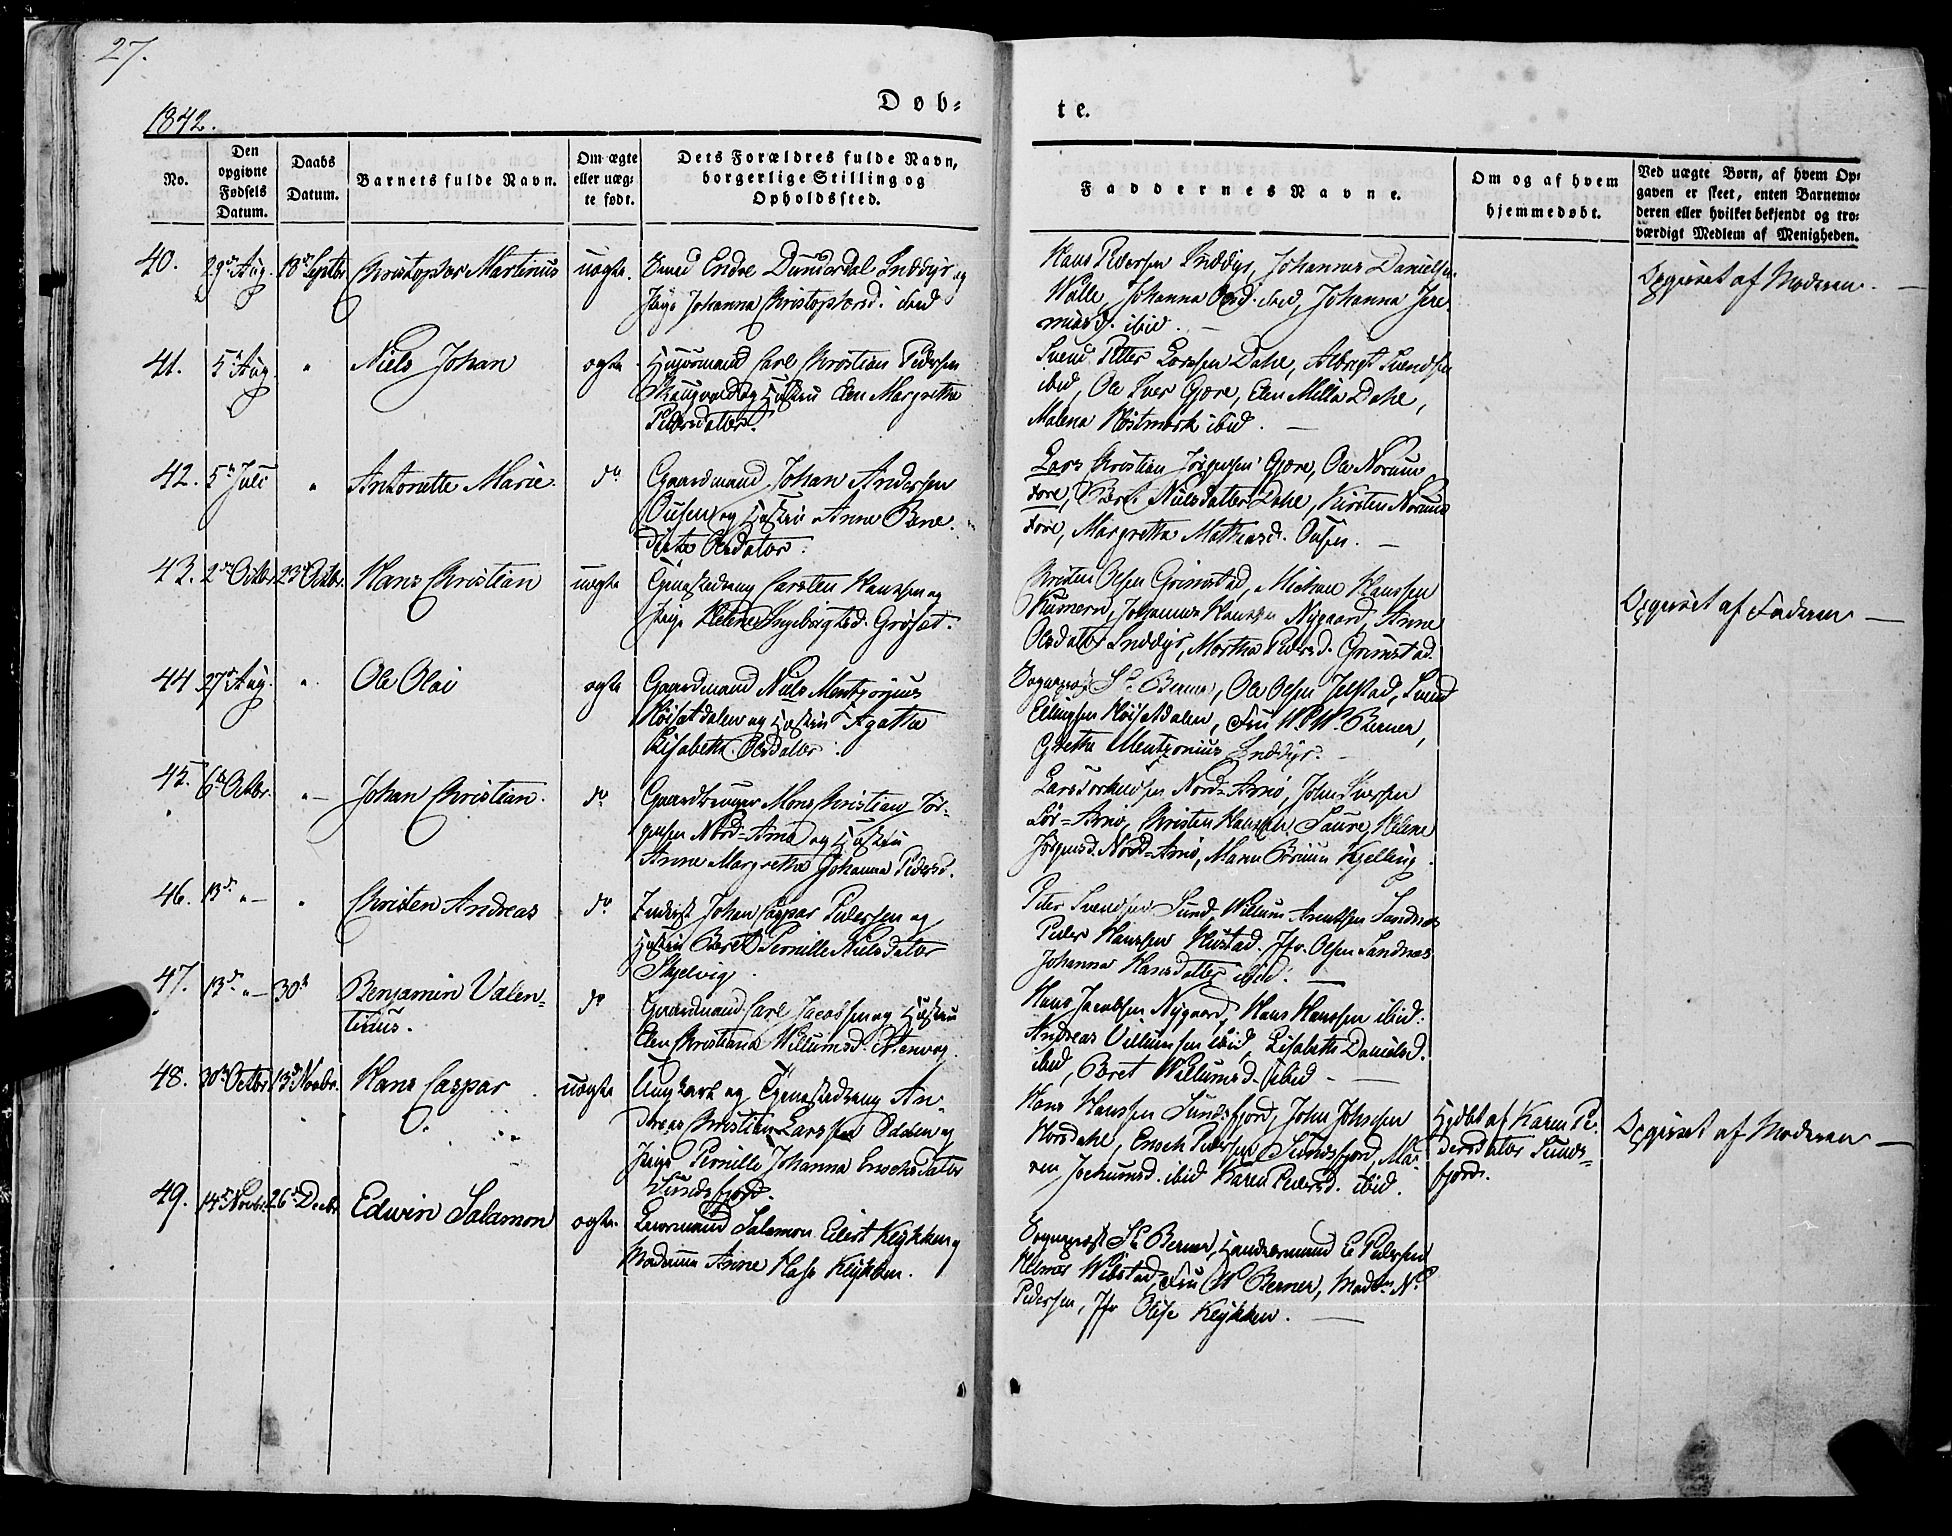 27.
1842.
Døb-
te.
No.
Den
opgivne
Fødsels
Datum.
Daabs
Datum.
Barnets fulde Navn.
Om ægte
eller uæg-
te født.
Dets Forældres fulde Navn,
borgerlige Stilling og
Opholdssted.
Faddernes Navne.
Om og af hvem
hjemmedøbt.
Ved uægte Børn, af hvem Op-
gaven er skeet, enten Barnemo-
deren eller hvilket bekjendt og tro-
værdigt Medlem af Menigheden.
40.
29de Aug.
18de Septbr
Christopher Martinus
uægte.
Svend Endre Dunderdal Inddyr og
Pige Johanna Christophersd. ibid
Hans Pedersen Inddyr, Johannes Danielsen
Wolle, Johanna Olsd. ibid, Johanna Jere
miasd. ibid. —
Opgivet af Moderen. —
41.
5te Aug.
"
Niels Johan
ægte
Huusmand Carl Christian Pedersen
Skaugvold og Hustru Elen Margrethe
Pedersdatter.
Svend Petter Larssen Dahl, Albrigt Svendsen
ibid, Ole Iver Gjøre, Elen Milla Dahl,
Malena Kostmork ibid. —
42.
5te Juli
"
Antonette Marie
do
Gaardmand Johan Andersen
Ousen og Hustru Anne Bene-
dicte Olsdatter.
Lars Christian Jørgensen Gjøre, Ole Norum
fore, Beret Nielsdatter Dahl, Kirsten Norum
fore, Margrethe Mathiasd. Ousen. —
43.
2den Octbr
23de Octbr.
Hans Christian
uægte
Tjenestedreng Carsten Hanssen og
Pige Helene Ingebrigtsd. Grøsæt.
Christen Olsen Grimstad, Michael Hanssen
Johannes Hanssen Nygaard, Anne
Olsdatter Inddyr, Martha Pedersd. Grimstad.
Opgivet af Faderen —
44
27de Aug.
"
Ole Olai
ægte
Gaardmand Niels Mentzonius
Høisætdalen og Hustru Agatha
Elisabeth Olsdatter.
Sognepræst Sl. Berner, Ole Olsen Jelstad, Svend
Ellingsen Høisætdalen, Fru W. W. Berner,
Grethe Mentzonius Inddyr. —
45.
6te Octbr.
" —
Johan Christian.
do
Gaardbruger Mons Christian Jør-
gensen Nord-Arnø og Hustru
Anne Margrethe Johanna Pedersd.
Nord-Arnø, John Iversen
Sør-Arnø, Christen Hanssen Saure, Helene
Jørgensd. Nord-Arnø, Maren Kjelling.
46.
13de " —
"
Christen Andreas
do
Inderst Johan Caspar Pedersen og
Hustru Beret Pernille Nielsdatter
Skjelvig.
Peter Svendsen Sund, Willum Arentsen Sandnæs
Peder Hanssen Hustad. Jfr. Olsen Sandnæs
Johanna Hansdatter ibid. —
47.
13de " —
30te
Benjamin Valen-
tinus.
do
Gaardmand Carl Jacobsen og Hustru
Elen Christiana Willumsd.
Hans Jacobsen Nygaard, Hans Hanssen ibid.
Andreas Villumsen ibid, Elisabeth Danielsd.
ibid, Beret Willumsd. ibid —
48.
30te Octbr.
13de Novbr.
Hans Caspar
uægte
Ungkarl og Tjenestedreng An-
dreas Christian Larssen Odden og
Pige Pernille Johanna Enochsdatter
Sundsfjord.
Hans Hanssen Sundsfjord, John Johnsen
Horsdahl, Enoch Pedersen Sundsfjord, Ma-
ren Jochumsd. ibid Karen Pedersd. ibid.
Hjdbt af Karen Pe-
dersdatter Sunds-
fjord.
Opgivet af Moderen —
49.
14de Novbr.
26de Decbr.
Edwin Salamon
ægte
Lensmand Salamon Eilert Klykken og
Madame Anne Hass Klykken.
Sognepræst Sl. Berner, Handelsmand E Pedersen
Wibstad, Fru W Berner, Madme N.
Pedersen, Jfr Olise Klykken. —